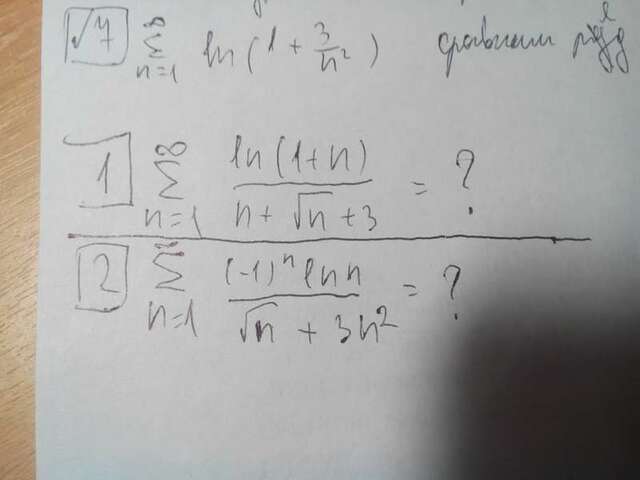 √7 ∞ Σ n=1 ln(1 + 3/n²) сравним ряд
1 ∞ Σ n=1 ln(1+n) / (n + √n + 3) = ?
2 ∞ Σ n=1 (-1)ⁿ ln n / (√n + 3n²) = ?